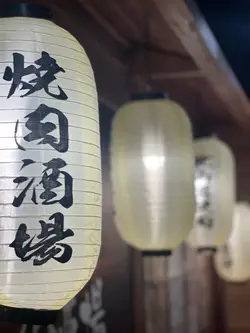 焼肉酒場